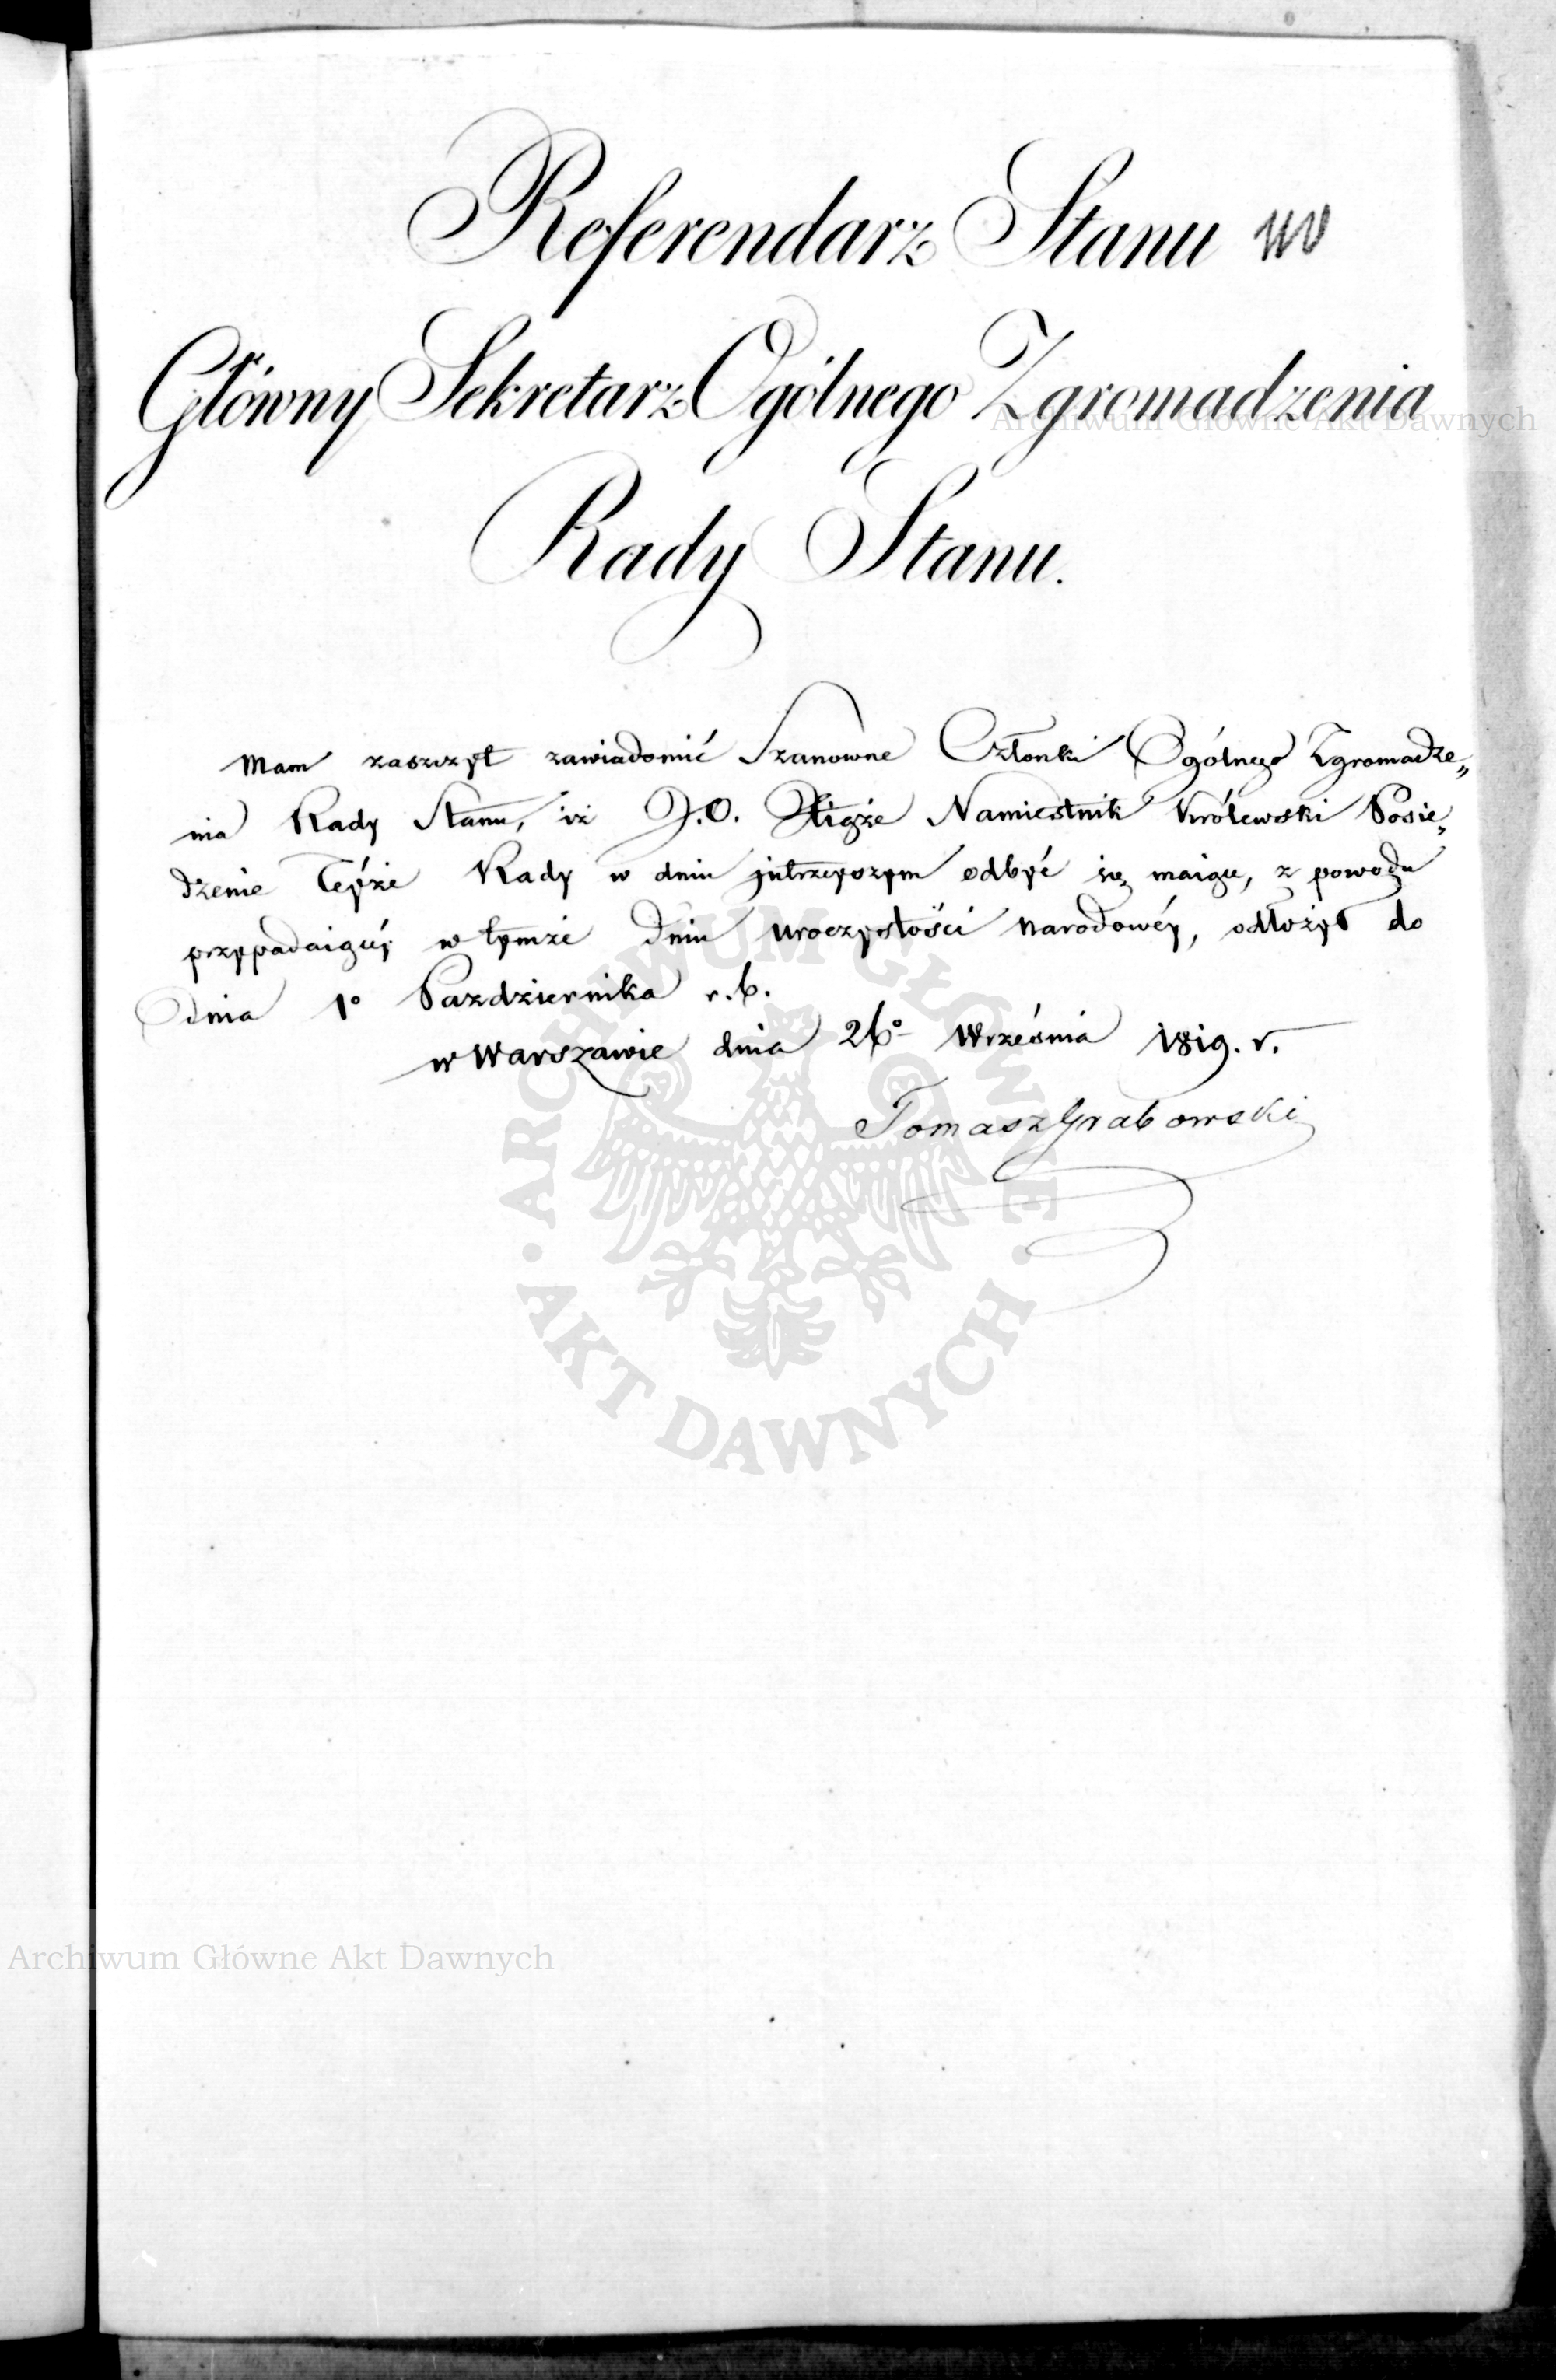 Referendarz Stanu
Główny Sekretarz Ogólnego Zgromadzenia
Rady Stanu.
Mam zaszczyt zawiadomić Szanowne Członki Ogólnego Zgromadze„
nia Rady Stanu, iż J.O. Xiąże Namiestnik Królewski Posie„
dzenie Teyże Rady w dniu jutrzeyszym odbyć się maiące, z powodu
przypadaiącéy w tymże dniu uroczystości narodowéy, odłożył do
dnia 1º Pazdziernika r.b.
w Warszawie dnia 26º Września 1819. r.
Tomasz Grabowski
Archiwum Główne Akt Dawnych
ARCHIWUM GŁÓWNE
AKT DAWNYCH
Archiwum Główne Akt Dawnych